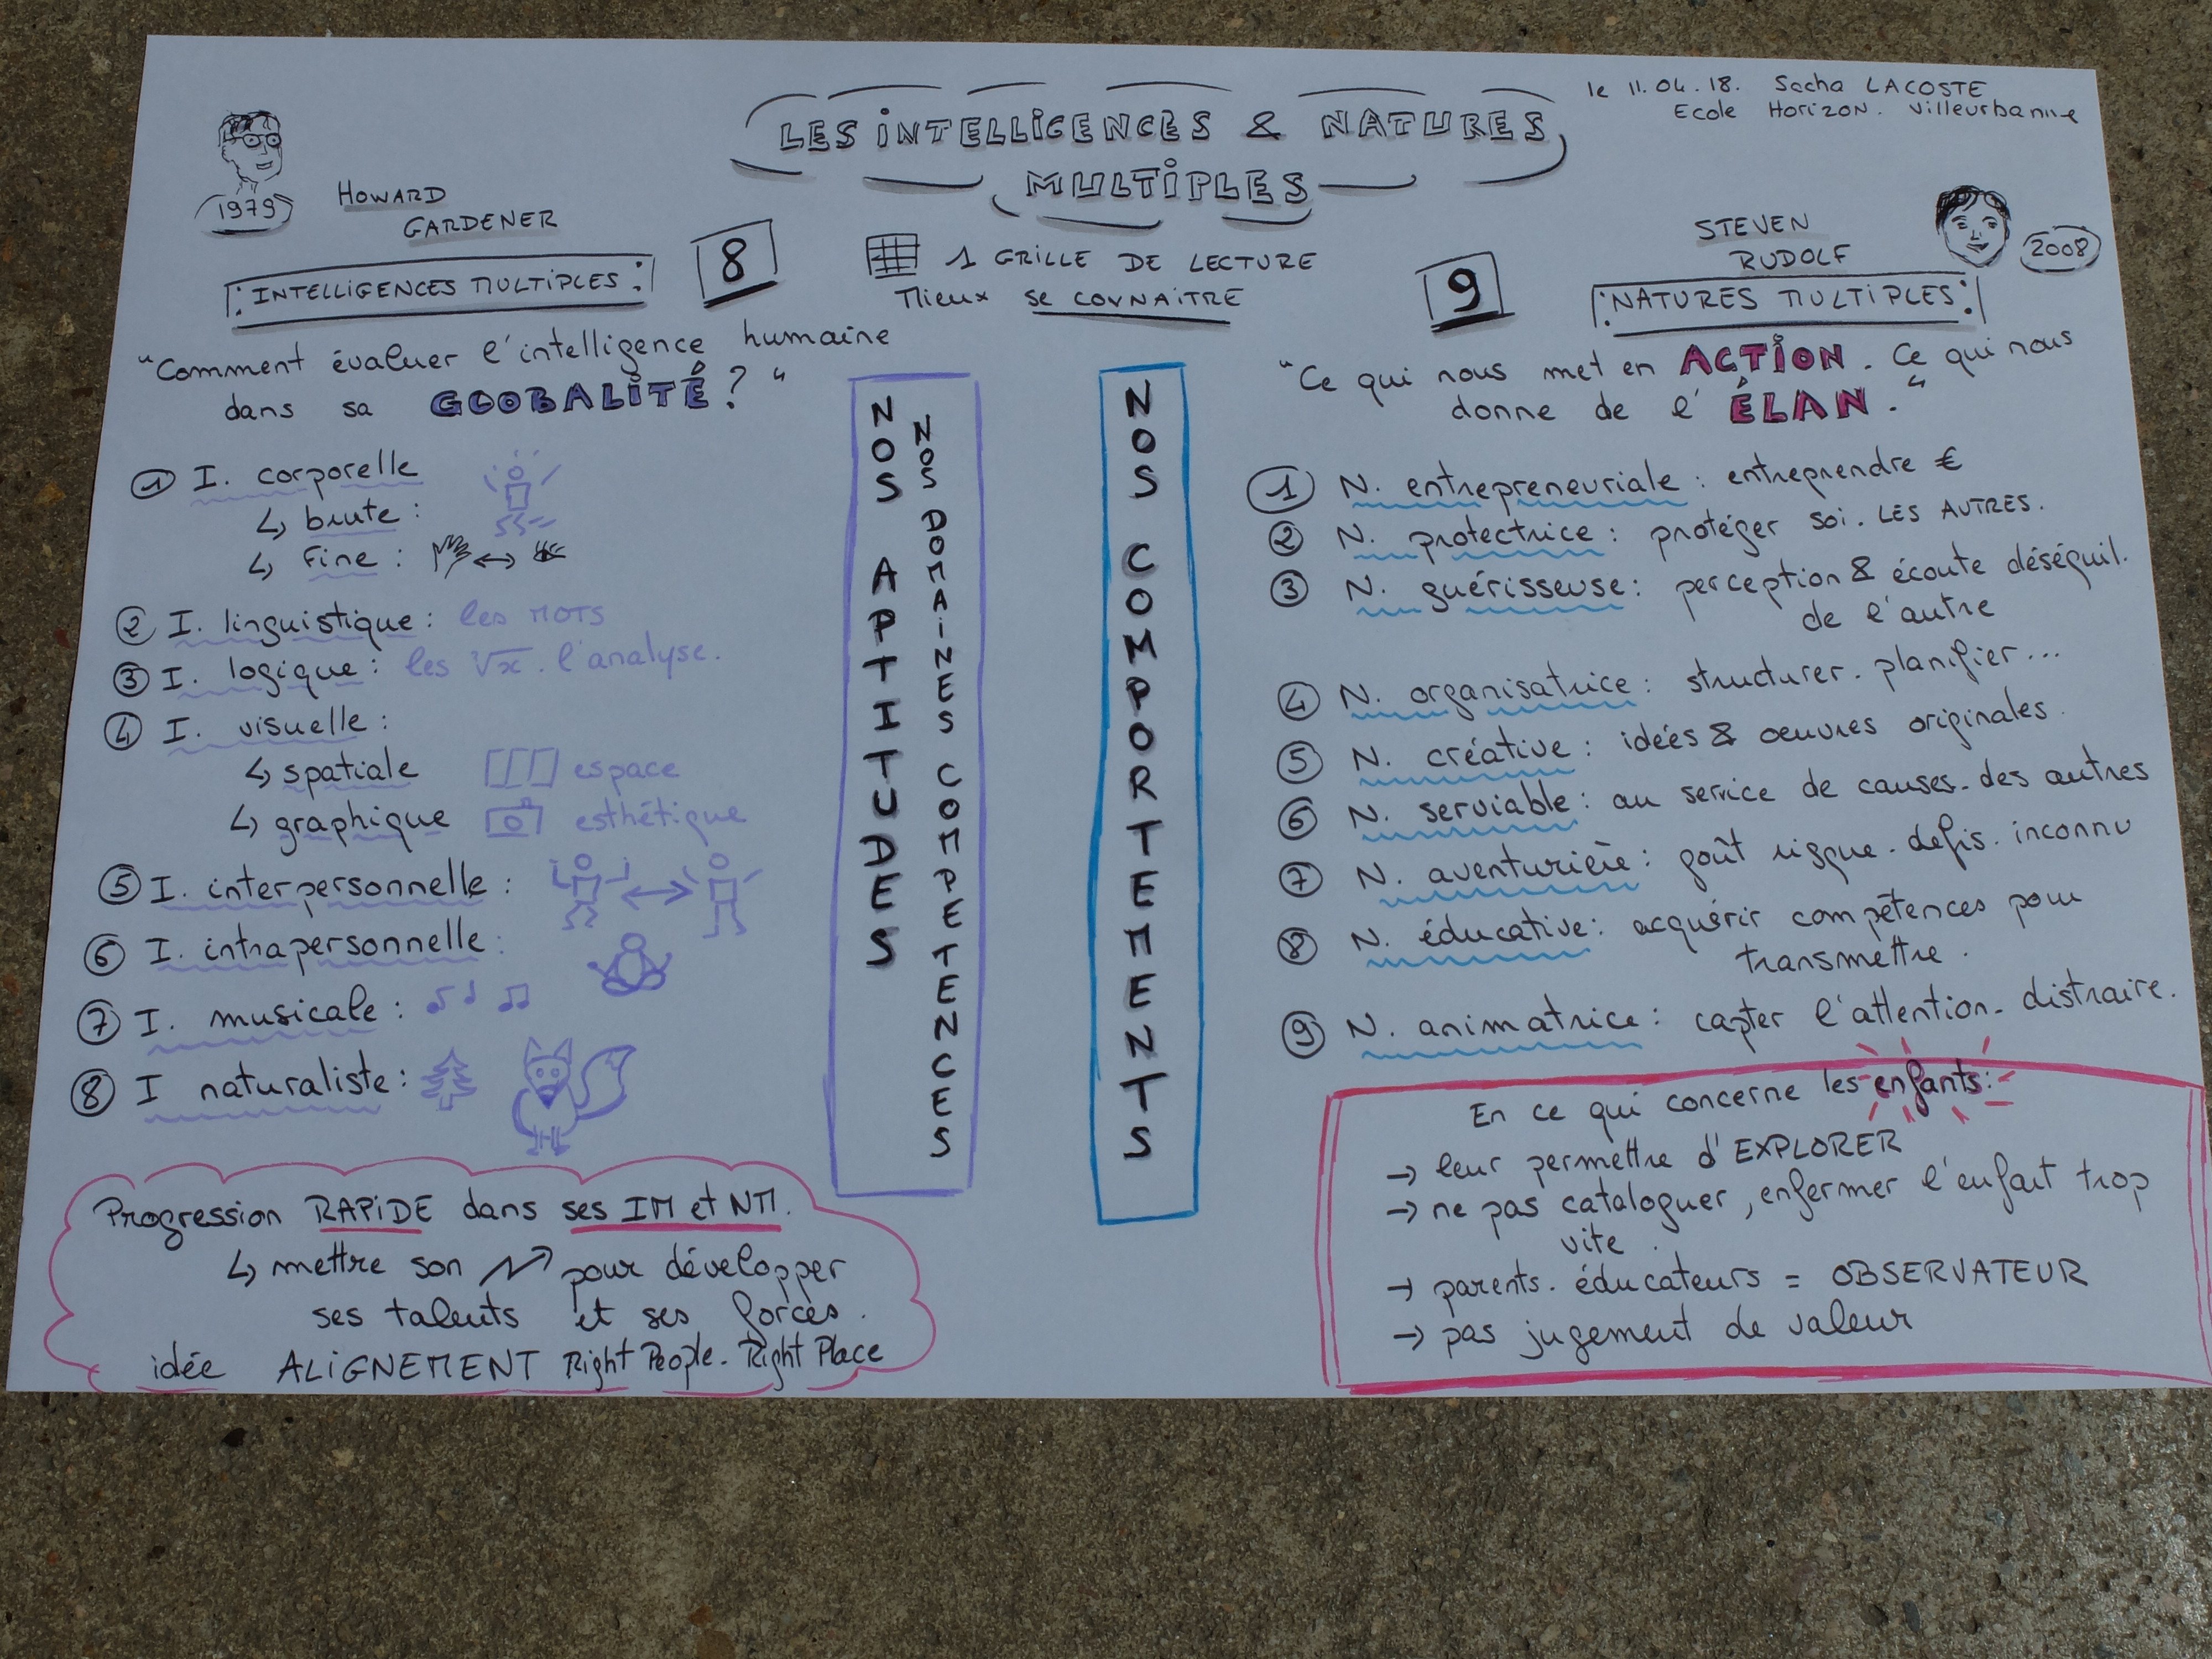 le 11.04.18. Sacha LACOSTE
Ecole Horizon. Villeurbanne
LES INTELLIGENCES & NATURES
MULTIPLES
1979
HOWARD
GARDENER
INTELLIGENCES MULTIPLES:
8
1 GRILLE DE LECTURE
Mieux se CONNAITRE
"Comment évaluer l'intelligence humaine
dans sa GLOBALITÉ ? "
1 I. corporelle
↳ brute :
↳ Fine : ↔
2 I. linguistique : les MOTS
3 I. logique : les ∛x. l'analyse.
4 I. visuelle :
↳ spatiale espace
↳ graphique esthétique
5 I. interpersonnelle :
6 I. intrapersonnelle :
7 I. musicale :
8 I naturaliste :
Progression RAPIDE dans ses IM et NM.
↳ mettre son pour développer
ses talents et ses forces.
idée ALIGNEMENT Right People. Right Place
NOS APTITUDES
NOS DOMAINES COMPETENCES
NOS COMPORTEMENTS
STEVEN
RUDOLF
2008
9
:NATURES MULTIPLES:
"Ce qui nous met en ACTION. Ce qui nous
donne de l'ÉLAN."
1 N. entrepreneuriale : entreprendre €
2 N. protectrice : protéger soi. LES AUTRES.
3 N. guérisseuse : perception & écoute déséquil.
de l'autre
4 N. organisatrice : structurer. planifier...
5 N. créative : idées & oeuvres originales.
6 N. serviable : au service de causes. des autres
7 N. aventurière : goût risque. défis. inconnu
8 N. éducative : acquérir compétences pour
transmettre.
9 N. animatrice : capter l'attention. distraire.
En ce qui concerne les enfants :
→ leur permettre d'EXPLORER
→ ne pas cataloguer, enfermer l'enfant trop
vite.
→ parents. éducateurs = OBSERVATEUR
→ pas jugement de valeur